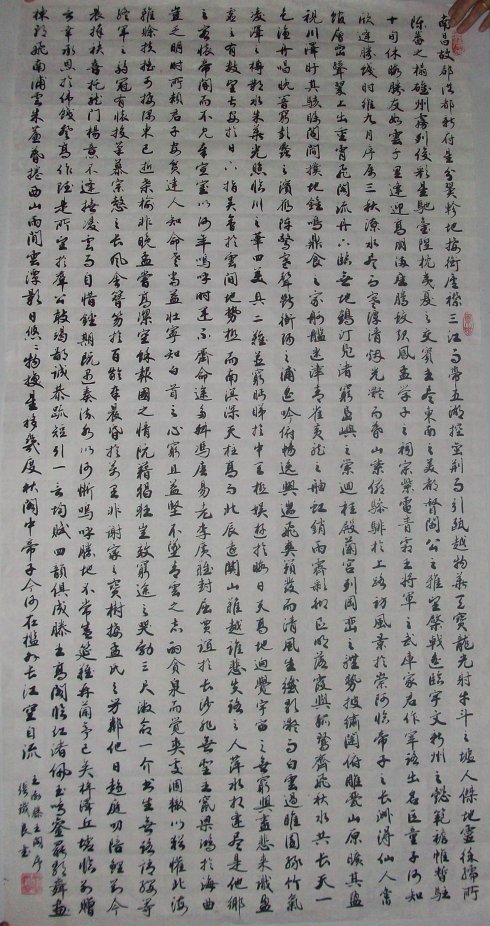 南昌故郡洪都新府星分翼軫地接衡廬襟三江而帶五湖控蠻荊而引甌越物華天寶龍光射牛斗之墟人傑地靈徐孺
陳蕃之榻雄州霧列俊彩星馳臺隍枕夷夏之交賓主盡東南之美都督閻公之雅望棨戟遙臨宇文新州之懿範襜帷暫駐
十旬休暇勝友如雲千里逢迎高朋滿座騰蛟起鳳孟學士之詞宗紫電青霜王將軍之武庫家君作宰路出名區童子何知
欣逢勝踐時維九月序屬三秋潦水盡而寒潭清煙光凝而暮山紫儼驂騑於上路訪風景於崇阿臨帝子之長洲得仙人舊
館層巒聳翠上出重霄飛閣流丹下臨無地鶴汀鳧渚窮島嶼之縈迴桂殿蘭宮列岡巒之體勢披繡闥俯雕甍山原曠其盈
視川澤盱其駭矚閭閻撲地鐘鳴鼎食之家舸艦迷津青雀黃龍之舳虹銷雨霽彩徹區明落霞與孤鶩齊飛秋水共長天一
色漁舟唱晚響窮彭蠡之濱雁陣驚寒聲斷衡陽之浦遙吟俯暢逸興遄飛爽籟發而清風生纖歌凝而白雲遏睢園綠竹氣
凌澤之樽鄴水朱華光照臨川之筆四美具二難並窮睇眄於中天極娛遊於暇日天高地迥覺宇宙之無窮興盡悲來識盈
虛之有數望長安於日下指吳會於雲間地勢極而南溟深天柱高而北辰遠關山難越誰悲失路之人萍水相逢盡是他鄉
之客懷帝閽而不見奉宣室以何年嗚呼時運不齊命途多舛馮唐易老李廣難封屈賈誼於長沙非無聖主竄梁鴻於海曲
豈乏明時所賴君子安貧達人知命老當益壯寧知白首之心窮且益堅不墜青雲之志酌貪泉而覺爽處涸轍以猶懽北海
雖賒扶搖可接東隅已逝桑榆非晚孟嘗高潔空懷報國之情阮籍猖狂豈效窮途之哭勃三尺微命一介書生無路請纓等
終軍之弱冠有懷投筆慕宗愨之長風舍簪笏於百齡奉晨昏於萬里非謝家之寶樹接孟氏之芳鄰他日趨庭叨陪鯉對今
晨捧袂喜托龍門楊意不逢撫凌雲而自惜鍾期既遇奏流水以何慚嗚呼勝地不常盛筵難再蘭亭已矣梓澤丘墟臨別贈
言幸承恩於偉餞登高作賦是所望於群公敢竭鄙誠恭疏短引一言均賦四韻俱成滕王高閣臨江渚佩玉鳴鸞罷歌舞畫
棟朝飛南浦雲朱簾暮捲西山雨閒雲潭影日悠悠物換星移幾度秋閣中帝子今何在檻外長江空自流
王勃滕王閣序